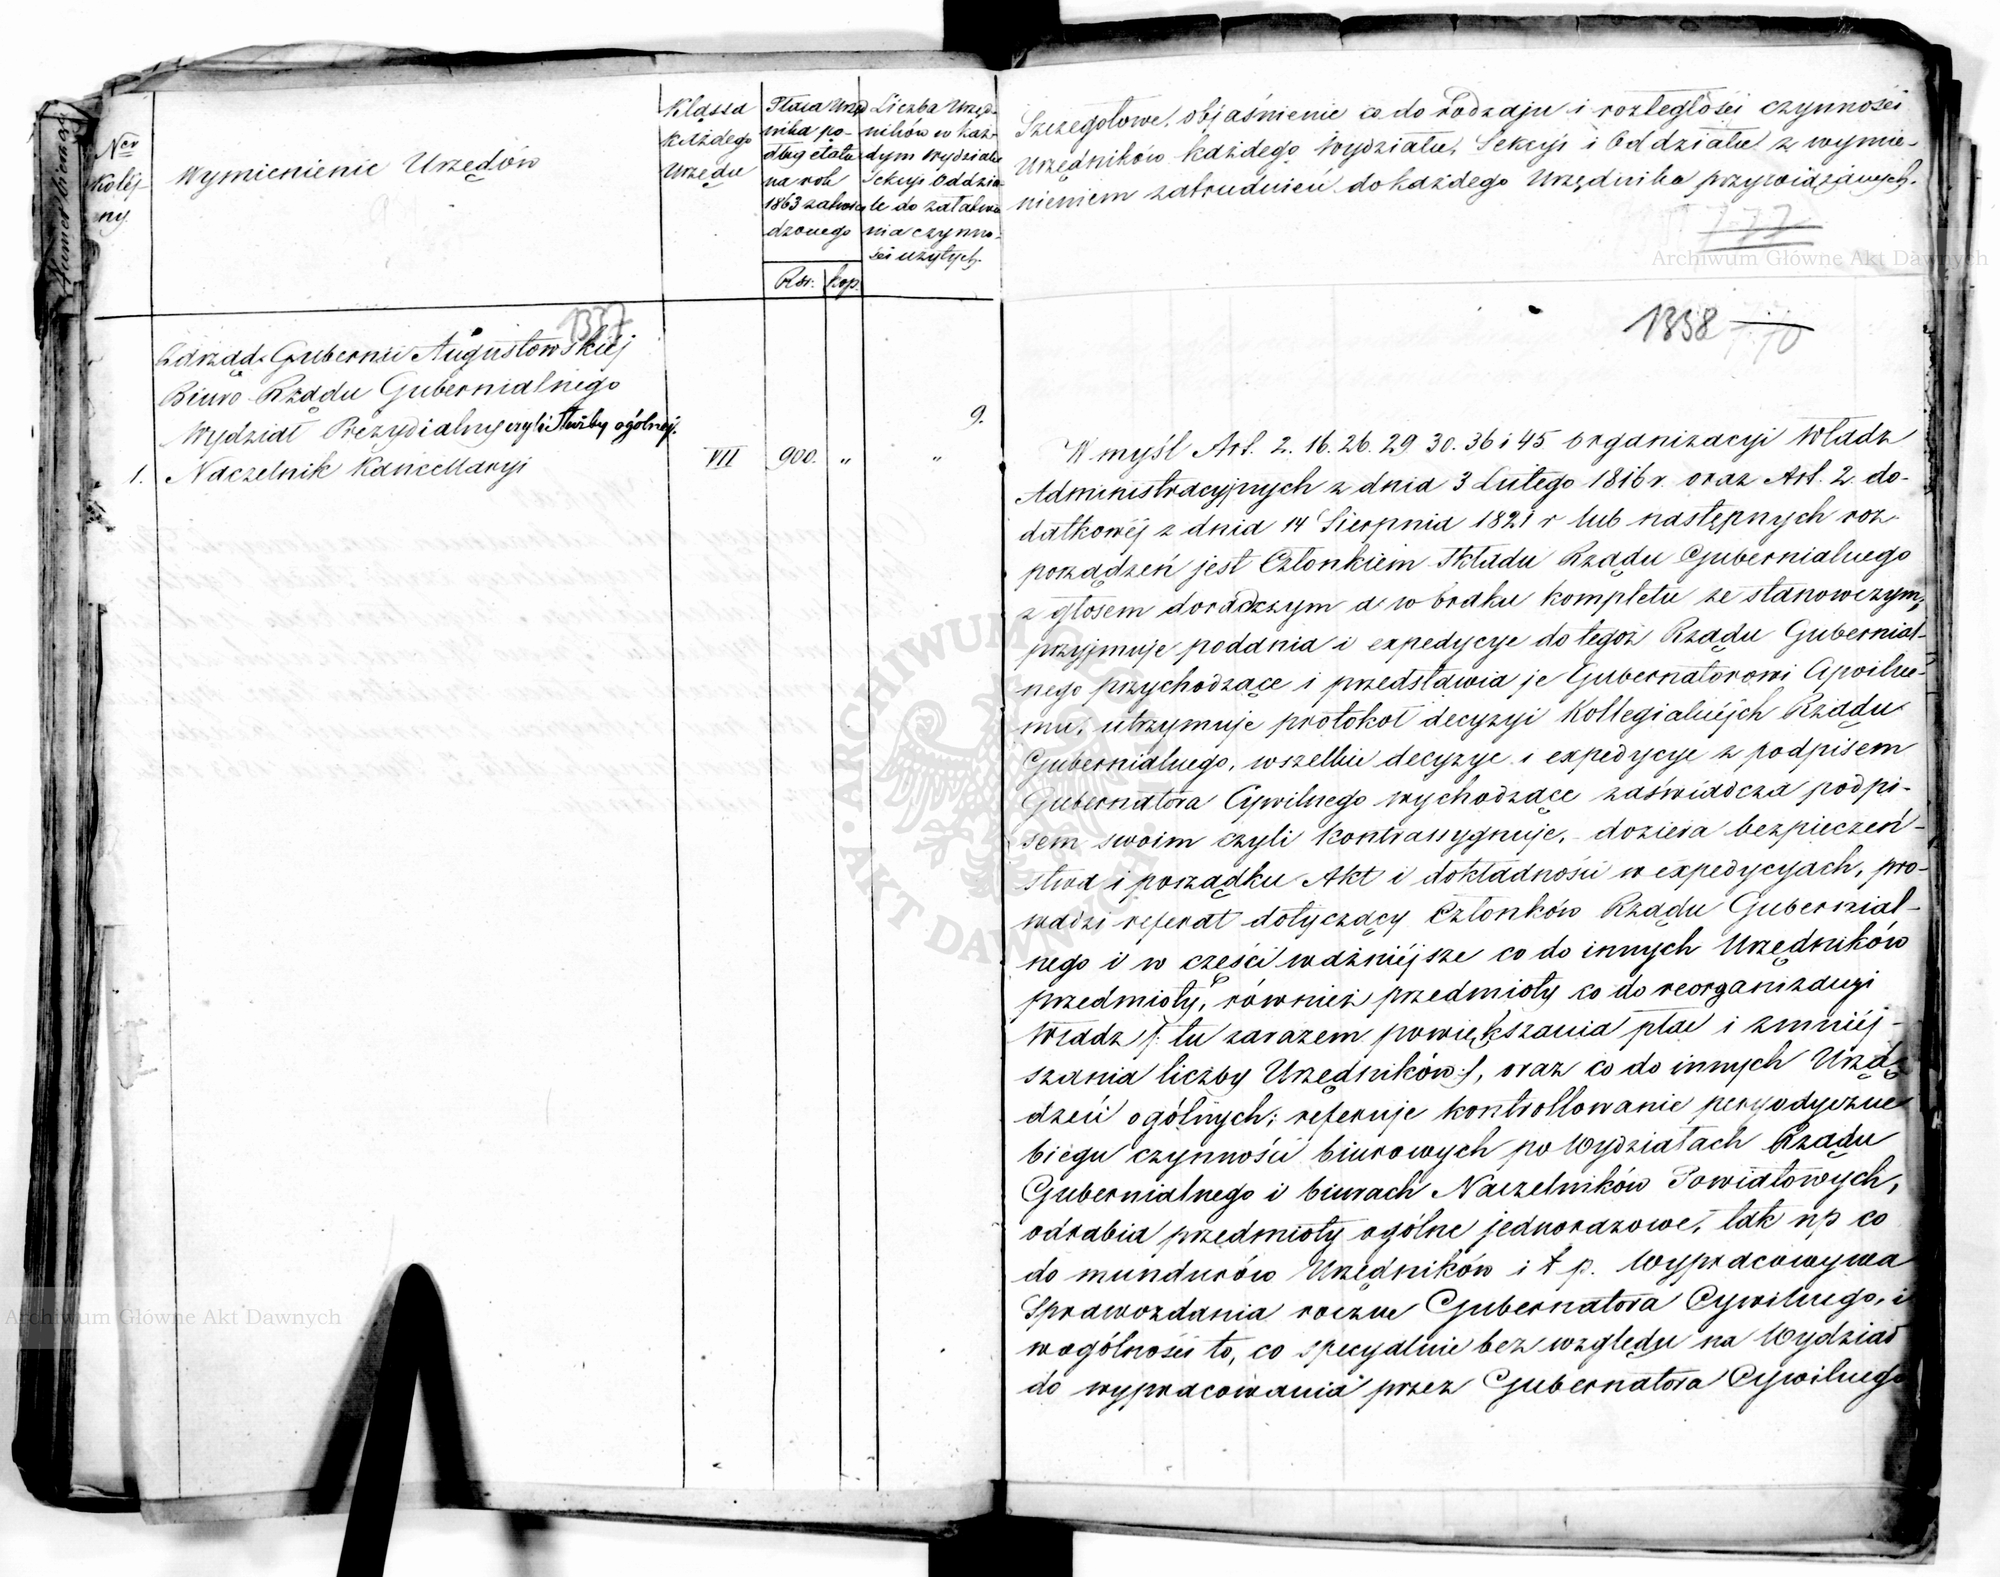 Ner
kolej-
ny
Wymienienie Urzędów
Klassa
każdego
Urzędu
Płaca Urzę
dnika po-
dług etatu
na rok
1863 zatwier
dzonego
Rsr. kop.
Liczba Urzęd-
ników w każ-
dym Wydziale
Sekcyi Oddzia-
le do załatwie
nia czynno-
ści użytych.
1337
Zarząd Gubernii Augustowskiéj
Biuro Rządu Gubernialnego
Wydział Prezydialny czyli Służby ogólnéj.
9.
1. Naczelnik Kancellaryi VII 900. „ „
Szczegółowe objaśnienie co do rodzaju i rozległości czynności
Urzędników każdego Wydziału, Sekcyi i Oddziału z wymie-
nieniem zatrudnień do każdego Urzędnika przywiązanych.
777
1338 770
W myśl Art. 2. 16. 26. 29 30. 36 i 45 organizacyi Władz
Administracyjnych z dnia 3 Lutego 1816 r. oraz Art. 2 do-
datkowéj z dnia 14 Sierpnia 1821 r lub następnych roz-
porządzeń jest Członkiem składu Rządu Gubernialnego
z głosem doradczym a w braku kompletu ze stanowczym,
przyjmuje podania i expedycye do tegoż Rządu Gubernial-
nego przychodzące i przedstawia je Gubernatorowi Cywilne-
mu, utrzymuje protokoł decyzyi Kollegialnéjch Rządu
Gubernialnego, wszelkie decyzye i expedycye z podpisem
Gubernatora Cywilnego wychodzące zaświadcza podpi-
sem swoim czyli kontrassygnuje, doziera bezpieczeń-
stwa i porządku Akt i dokładności w expedycyach, pro-
wadzi referat dotyczący Członków Rządu Gubernial-
nego i w części ważniéjsze co do innych Urzędników
przedmioty, również przedmioty co do reorganizacyi
Władz /: tu zarazem powiększania płac i zmniéj-
szania liczby Urzędników :/, oraz co do innych Urzą-
dzeń ogólnych; referuje kontrollowanie peryodyczne
biegu czynności biurowych po Wydziałach Rządu
Gubernialnego i biurach Naczelników Powiatowych,
odrabia przedmioty ogólne jednorazowe, tak np co
do mundurów Urzędników i t p. Wypracowywa
Sprawozdania roczne Gubernatora Cywilnego, i
wogólności to, co specyalnie bez względu na Wydział
do wypracowania przez Gubernatora Cywilnego
Archiwum Główne Akt Dawnych
Archiwum Główne Akt Dawnych
ARCHIWUM GŁÓWNE AKT DAWNYCH